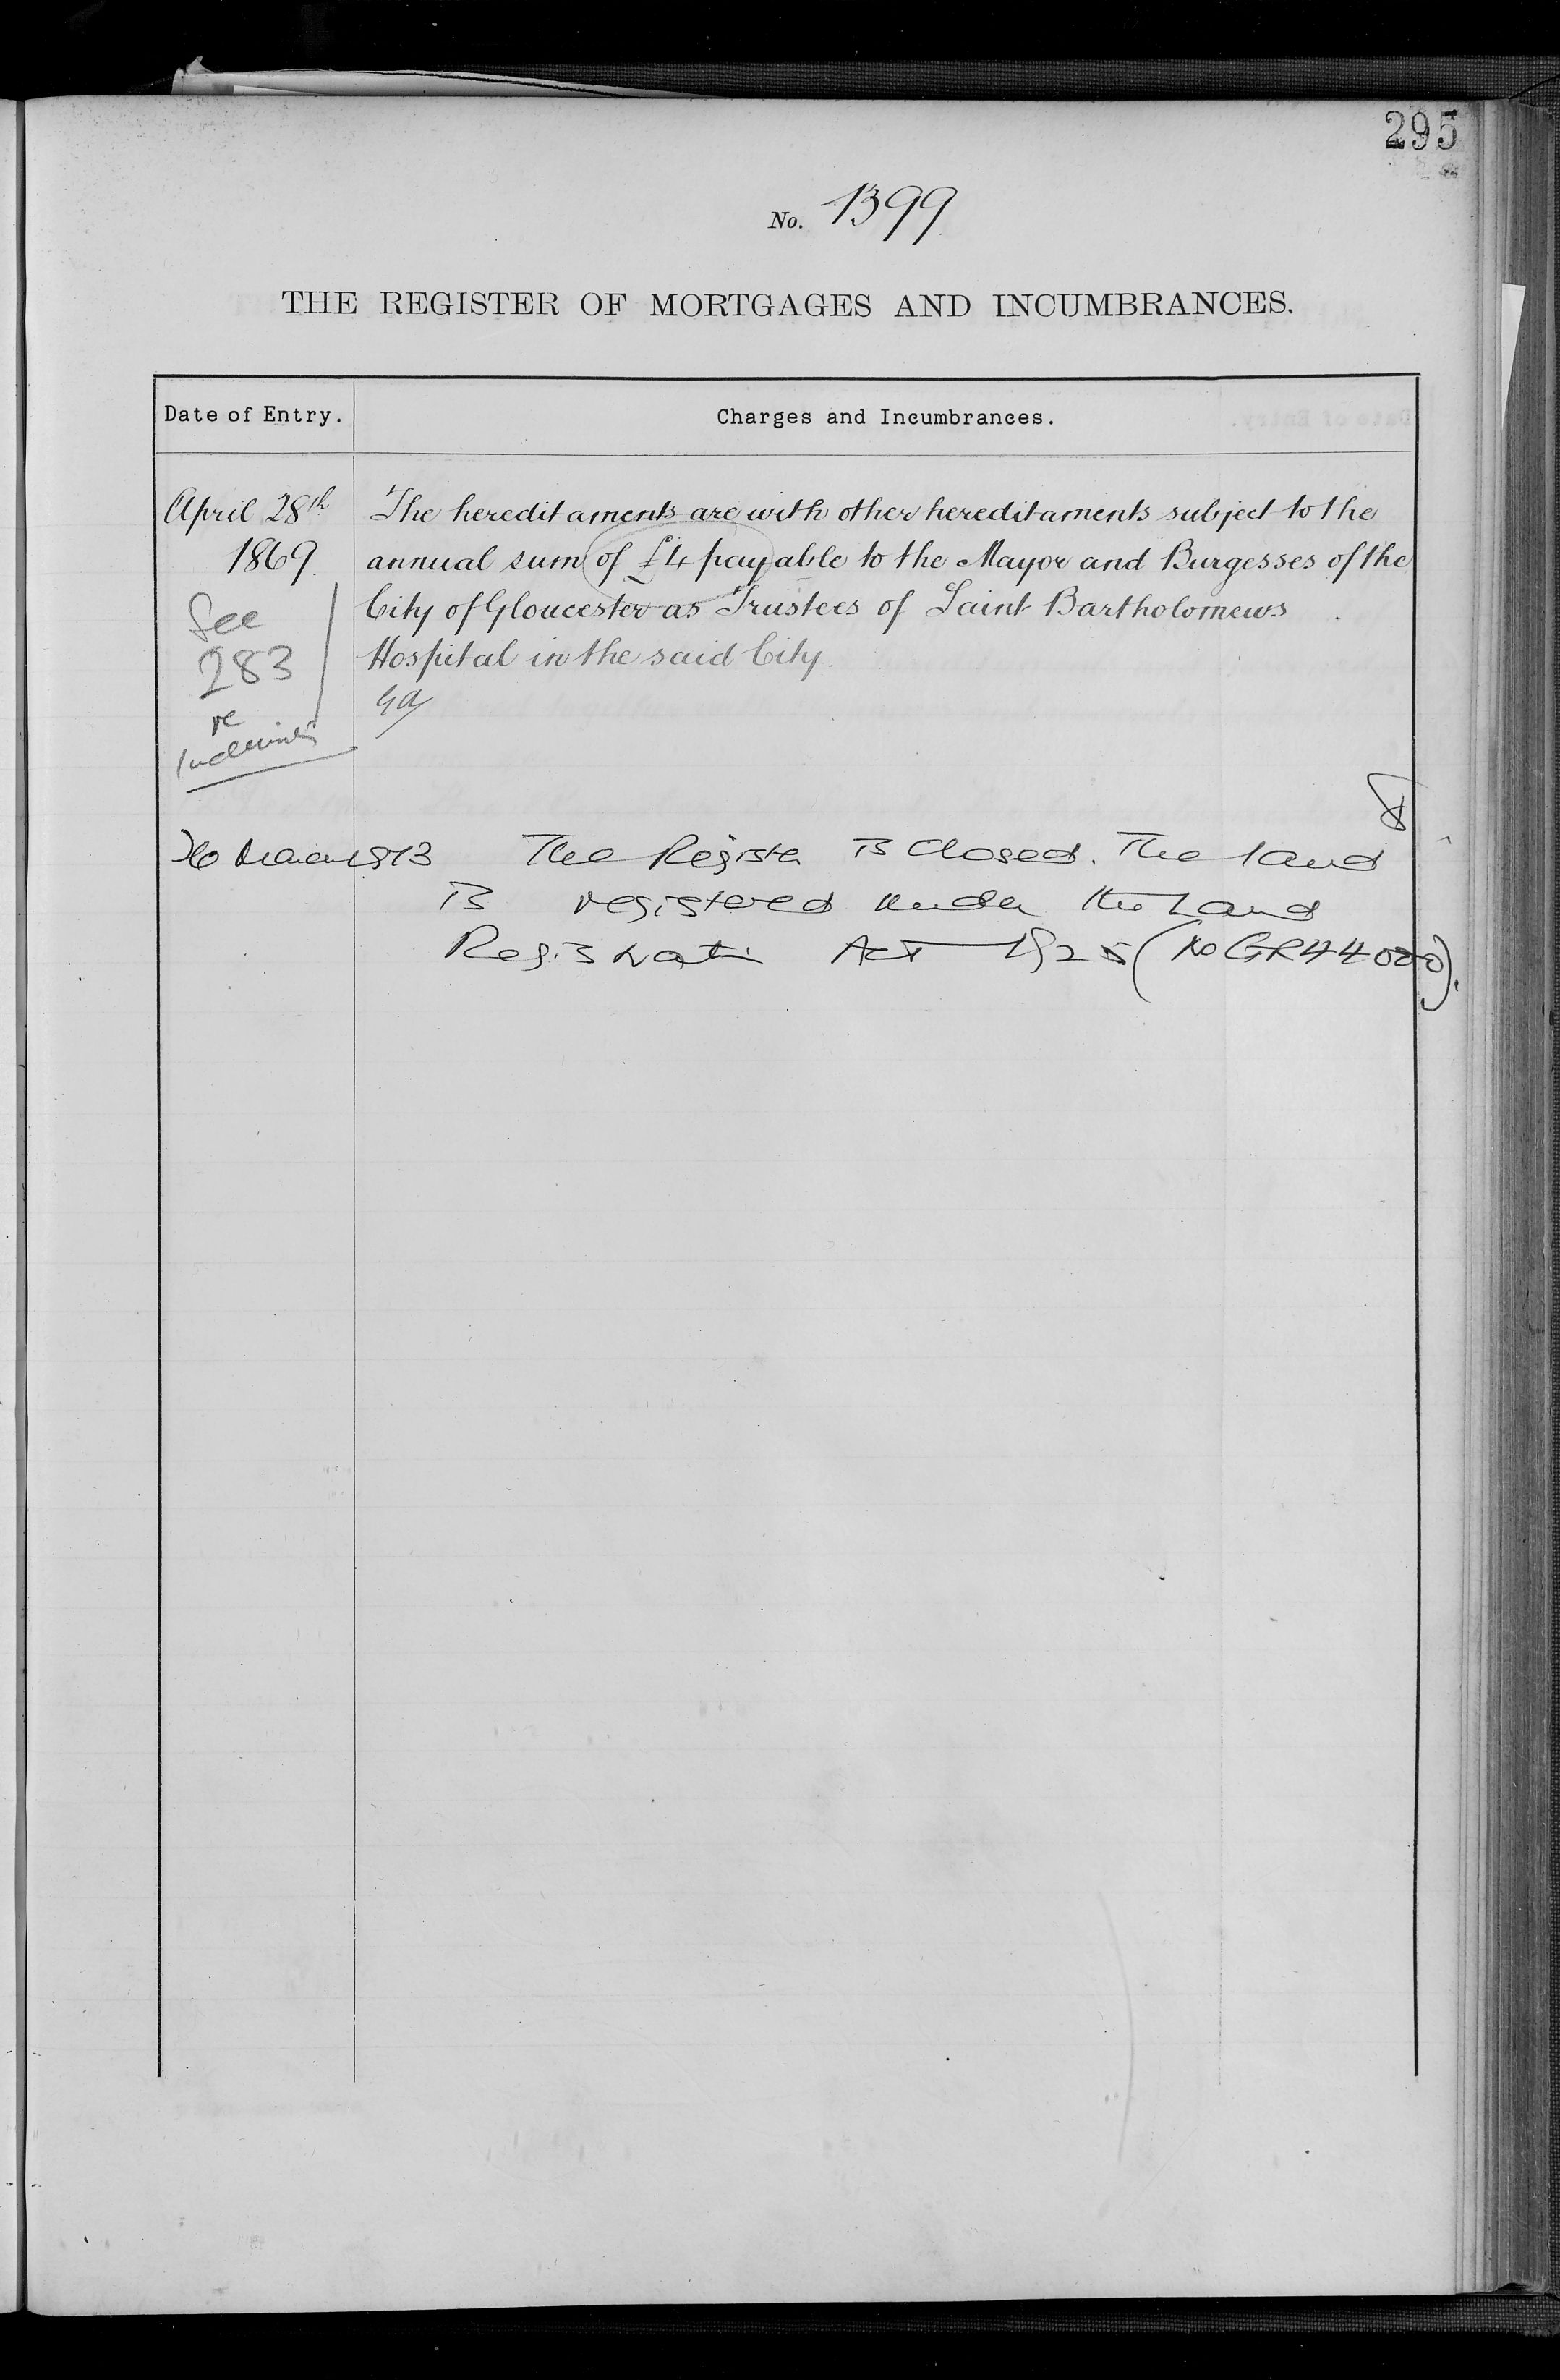 295
No. 1399
THE REGISTER OF MORTGAGES AND INCUMBRANCES.
Date of Entry. Charges and Incumbrances.
April 28th The hereditaments are with other hereditaments subject to the
1869. annual sum of £4 payable to the Mayor and Burgesses of the
City of Gloucester as Trustees of Saint Bartholomews
Hospital in the said City.
See
283
re
26 March 1973 The Register is closed. The land
is registered under the Land
Registration Act 1925 (No GR44000).